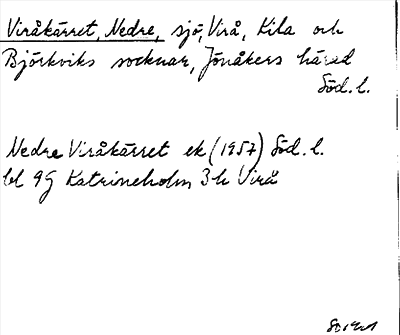 Viråkärret, Nedre, sjö, Virå, Kila och
Björkviks socknar, Jönåkers härad
Söd. l.
Nedre Viråkärret ek (1957) Söd. l.
bl 9G Katrineholm 3h Virå